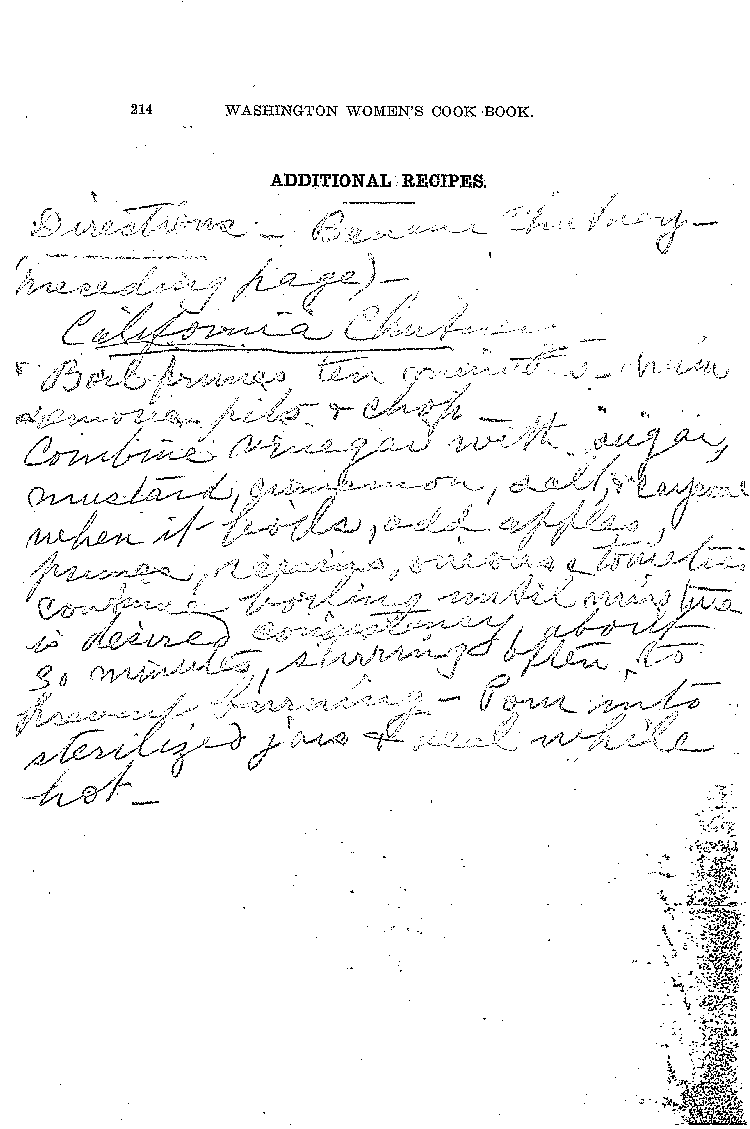 214 WASHINGTON WOMEN'S COOK BOOK.
ADDITIONAL RECIPES.
Directions - Banana Chutney -
preceding page) -
California Chutney
Boil prunes ten minutes - drain
remove pits & chop -
Combine vinegar with sugar,
mustard, cinnamon, salt, & cayenne
when it boils, add apples,
prunes, raisins, onions & tomatoes
continue boiling until mixture
is desired consistency, about
30 minutes, stirring often to
prevent burning - Pour into
sterilized jars & seal while
hot -